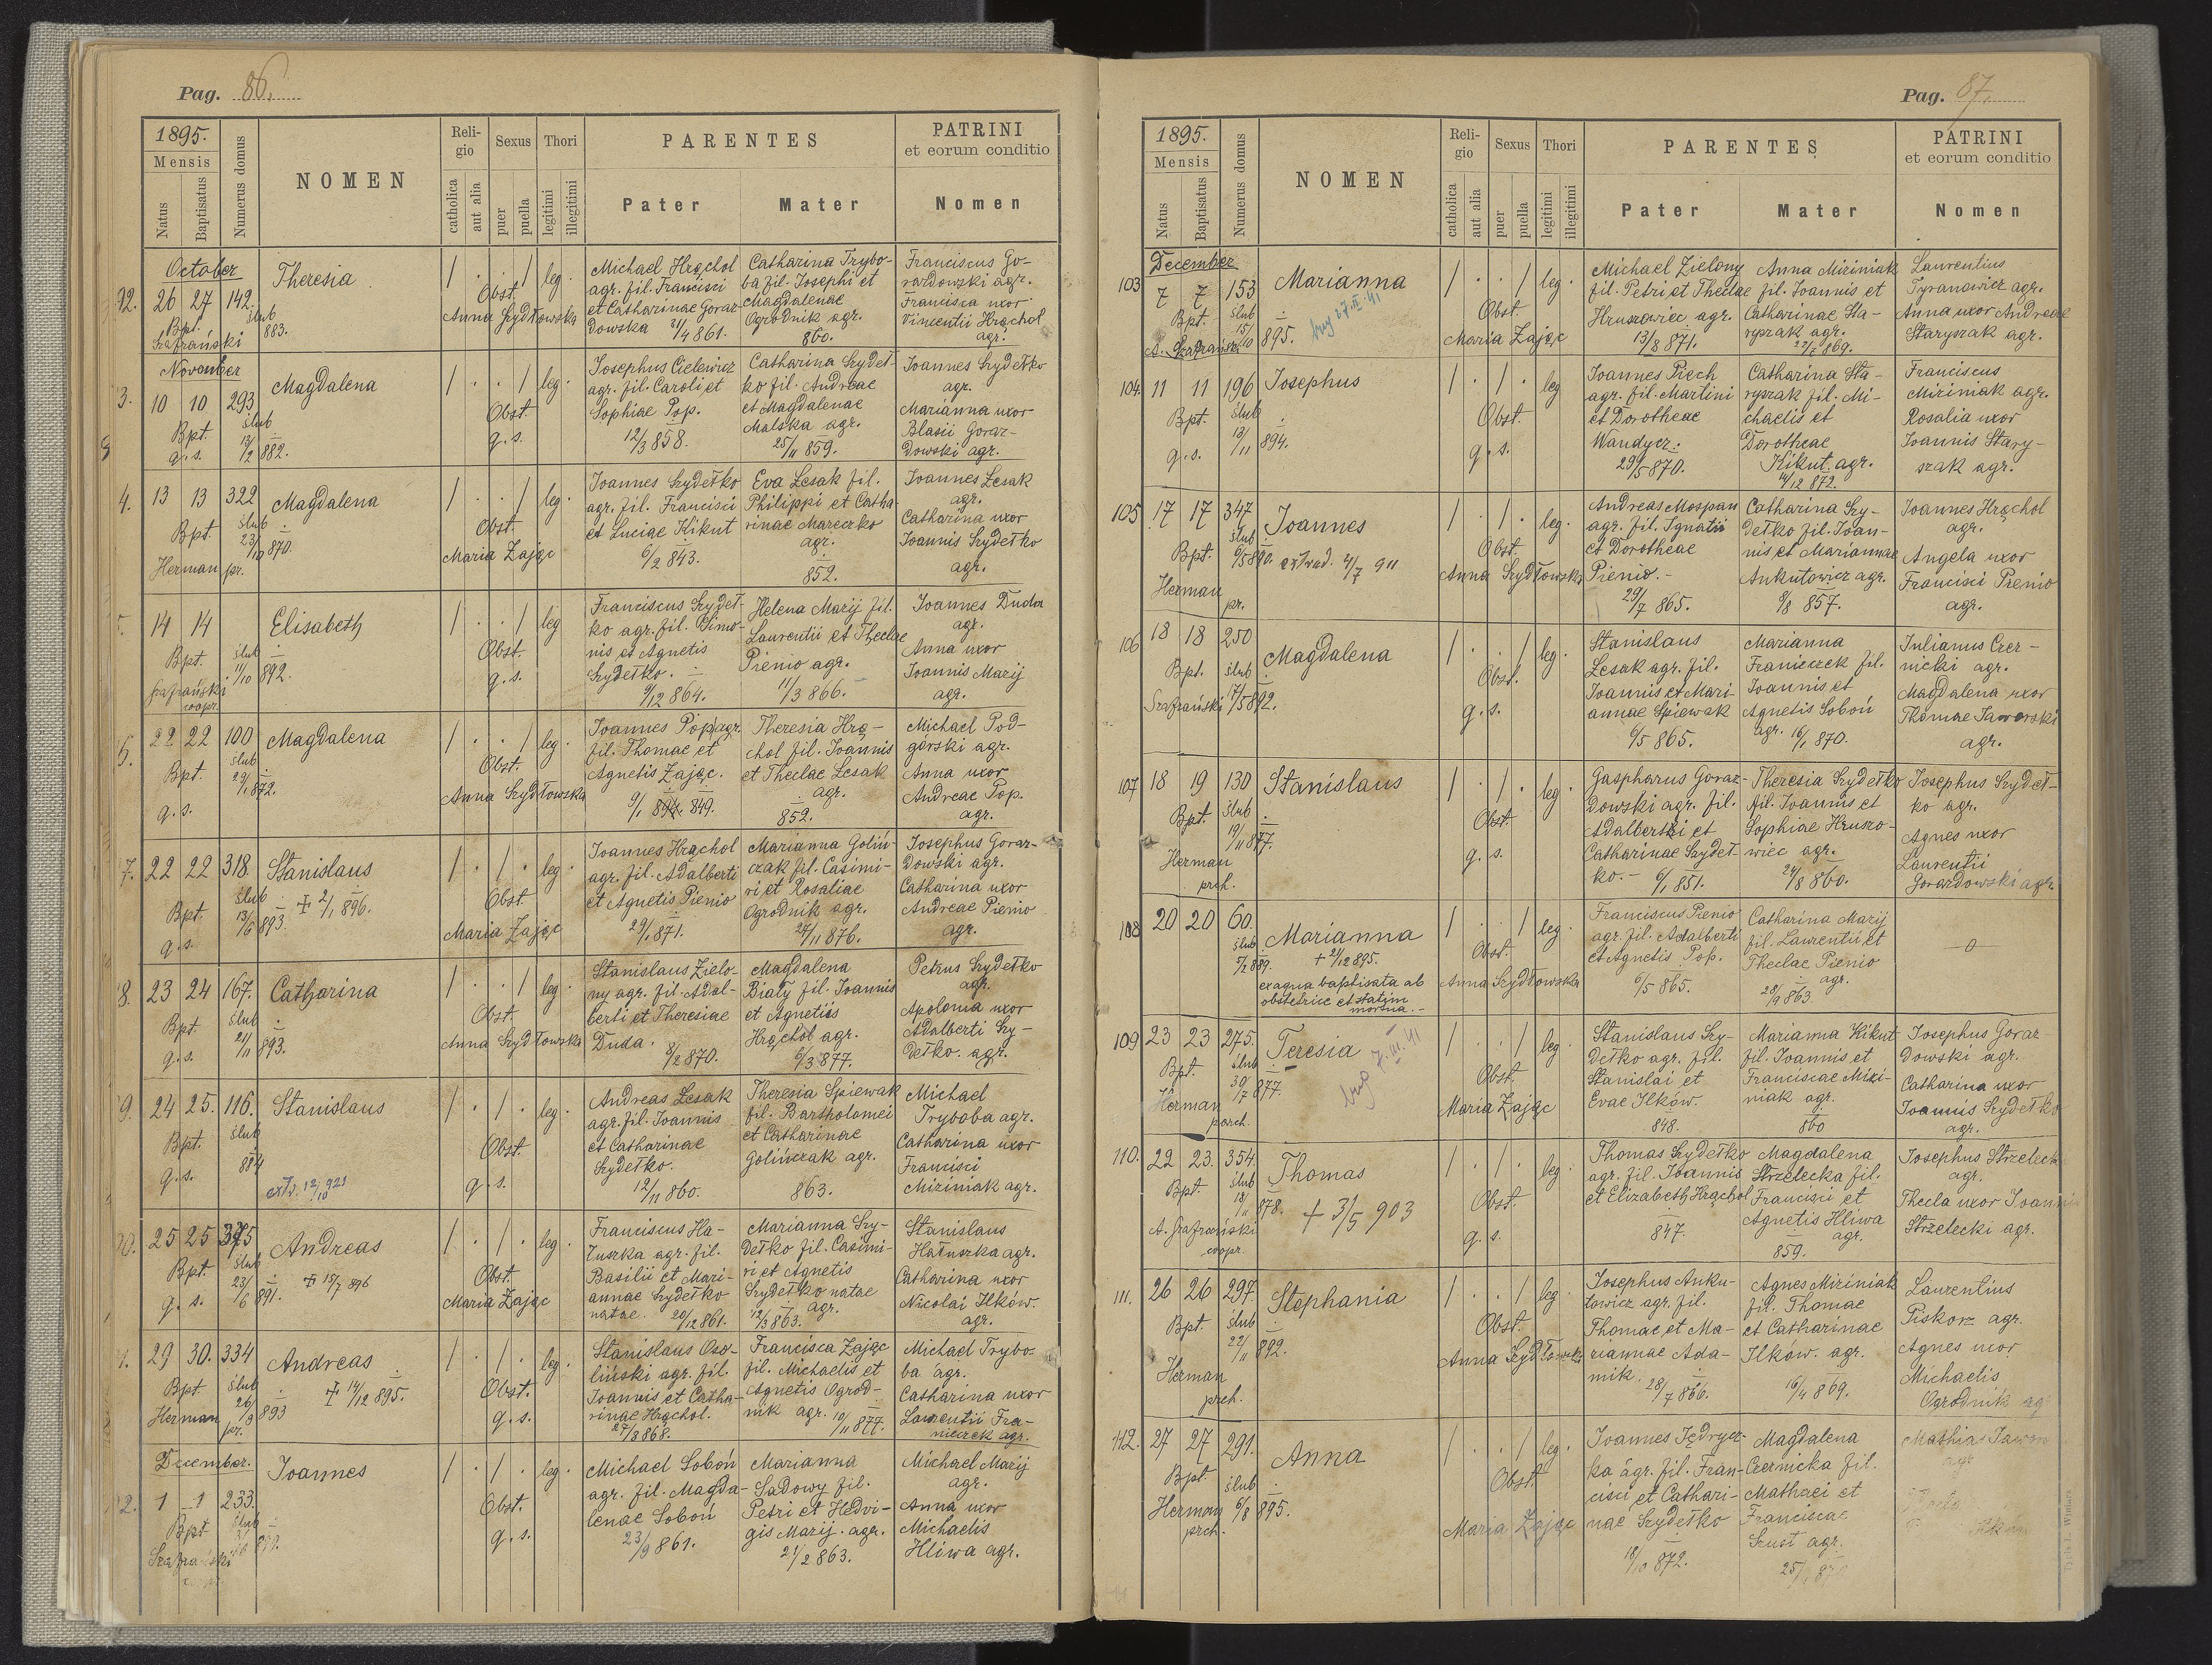 Pag. 86.
1895.
Mensis
Natus
Baptisatus
Numerus domus
NOMEN
Religio
catholica
aut alia
Sexus
puer
puella
Thori
legitimi
illegitimi
PARENTES
Pater
Mater
PATRINI
et eorum conditio
Nomen
October
92. 26 27 142. Theresia
Bpt. ślub 883.
Szafrański
leg.
Obst.
Anna Szydłowska
Michael Hrąchol
agr. fil. Francisci
et Catharinae Goraz-
dowska 31/4 861.
Catharina Trybo-
ba fil. Josephi et
Magdalenae
Ogrodnik agr.
860.
Franciscus Go-
razdowski agr.
Francisca uxor
Vincentii Hrąchol
agr.
November
3. 10 10 293 Magdalena
Bpt. ślub
q. s. 13/2 882.
leg.
Obst.
q. s.
Josephus Cielewicz
agr. fil. Caroli et
Sophiae Pop.
12/3 858.
Catharina Szydeł-
ko fil. Andreae
et Magdalenae
Malska agr.
25/11 859.
Joannes Szydełko
agr.
Marianna uxor
Blasii Goraz-
dowski agr.
4. 13 13 322 Magdalena
Bpt. ślub
23/10 870.
Herman pr.
leg.
Obst.
Maria Zając
Joannes Szydełko
agr. fil. Francisci
et Luciae Kikut
6/2 843.
Eva Lesak fil.
Philippi et Catha-
rinae Mareczko
agr.
852.
Joannes Lesak
agr.
Catharina uxor
Joannis Szydełko
agr.
14 14 Elisabeth
Bpt. ślub
11/10 892.
Szafrański
coopr.
leg
Obst.
q. s.
Franciscus Szydeł-
ko agr. fil. Simo-
nis et Agnetis
Szydełko.
9/12 864.
Helena Marij fil.
Laurentii et Theclae
Pienio agr.
11/3 866.
Joannes Duda
agr.
Anna uxor
Joannis Marij
agr.
22 22 100 Magdalena
Bpt. ślub
29/1 872.
q. s.
leg.
Obst.
Anna Szydłowska
Joannes Pop agr.
fil. Thomae et
Agnetis Zając.
849.
Theresia Hrą-
chol fil. Joannis
et Theclae Lesak
agr.
852.
Michael Pod-
górski agr.
Anna uxor
Andreae Pop.
agr.
7. 22 22 318. Stanislaus
ślub + 2/1 896.
Bpt. 13/6 893.
q. s.
leg.
Obst.
Maria Zając
Joannes Hrąchol
agr. fil. Adalberti
et Agnetis Pienio
29/1 871.
Marianna Goliń-
czak fil. Casimi-
ri et Rosaliae
Ogrodnik agr.
27/11 876.
Josephus Goraz-
dowski agr.
Catharina uxor
Andreae Pienio
agr.
8. 23 24 167. Catharina
Bpt. ślub
q. s. 21/11 893.
leg.
Obst.
Anna Szydłowska
Stanislaus Zielo-
ny agr. fil. Adal-
berti et Theresiae
Duda. 8/2 870.
Magdalena
Biały fil. Joannis
et Agnetis
Hrąchol agr.
6/3 877.
Petrus Szydełko
agr.
Apolonia uxor
Adalberti Szy-
dełko. agr.
9. 24 25. 116. Stanislaus
Bpt. ślub
q. s. 884
12/10 921
leg.
Obst.
q. s.
Andreas Lesak
agr. fil. Joannis
et Catharinae
Szydełko.
12/11 860.
Theresia Spiewak
fil. Bartholomei
et Catharinae
Golińczak agr.
863.
Michael
Tryboba agr.
Catharina uxor
Francisci
Miziniak agr.
25 25 Andreas
Bpt. ślub
q. s. 23/6 891. + 15/7 896
leg.
Obst.
Maria Zając
Franciscus Ha-
łuszka agr. fil.
Basilii et Mari-
annae Szydełko
natae. 20/12 861.
Marianna Szy-
dełko fil. Casimi-
ri et Agnetis
Szydełko natae
12/3 863. agr.
Stanislaus
Hałuszka agr.
Catharina uxor
Nicolai Ilków.
agr.
1. 29 30. 334 Andreas
Bpt. ślub + 14/12 895.
Herman 26/9 893
pr.
leg.
Obst.
q. s.
Stanislaus Oso-
liński agr. fil.
Joannis et Catha-
rinae Hrąchol.
27/3 868.
Francisca Zając
fil. Michaelis et
Agnetis Ogrod-
nik agr. 10/11 877.
Michael Trybo-
ba agr.
Catharina uxor
Laurentii Fra-
nieczek agr.
December.
2. 1 1 233. Joannes
Bpt ślub
Szafrański
leg.
Obst.
q. s.
Michael Soboń
agr. fil. Magda-
lenae Soboń
23/9 861.
Marianna
Sadowy fil.
Petri et Hedvi-
gis Marij. agr.
21/2 863.
Michael Marij
agr.
Anna uxor
Michaelis
Hliwa agr.
Pag. 87.
1895.
Mensis
Natus
Baptisatus
Numerus domus
NOMEN
Religio
catholica
aut alia
Sexus
puer
puella
Thori
legitimi
illegitimi
PARENTES
Pater
Mater
PATRINI
et eorum conditio
Nomen
December
103 7 7 153 Marianna
Bpt. ślub
15/10 895.
A. Szafrański
leg.
Obst.
Maria Zając
Michael Zielony
fil. Petri et Theclae
Hruszowiec agr.
13/8 871.
Anna Miziniak
fil. Joannis et
Catharinae Sta-
ryszak agr.
22/7 869.
Laurentius
Tyranowicz agr.
Anna uxor Andreae
Staryszak agr.
104. 11 11 196 Josephus
Bpt. ślub
13/11 894.
q. s.
leg
Obst.
q. s.
Joannes Piech
agr. fil. Martini
et Dorotheae
Wandycz.
29/5 870.
Catharina Sta-
ryszak fil. Mi-
chaelis et
Dorotheae
Kikut. agr.
14/12 872.
Franciscus
Miziniak agr.
Rosalia uxor
Joannis Stary-
szak agr.
105 17 17 347 Joannes
ślub
Bpt. 6/5 890. extrad. 4/7 911
Herman
pr.
leg.
Obst.
Anna Szydłowska
Andreas Mospan
agr. fil. Ignatii
et Dorotheae
Pienio.-
29/7 865.
Catharina Szy-
dełko fil. Joan-
nis et Mariannae
Ankutowicz agr.
8/8 857.
Joannes Hrąchol
agr.
Angela uxor
Francisci Pienio
agr.
106 18 18 250 Magdalena
Bpt. ślub
Szafrański 17/5 892.
leg.
Obst.
q. s.
Stanislaus
Lesak agr. fil.
Joannis et Mari-
annae Spiewak
6/5 865.
Marianna
Franieczek fil.
Joannis et
Agnetis Soboń
agr. 16/1 870.
Julianus Czer-
nicki agr.
Magdalena uxor
Thomae Jaworski
agr.
107 18 19 130 Stanislaus
Bpt. ślub
19/11 877.
Herman
prch.
leg.
Obst.
q. s.
Gaspharus Goraz-
dowski agr. fil.
Adalberti et
Catharinae Szydeł-
ko.- 6/1 851.
Theresia Szydełko
fil. Joannis et
Sophiae Hruszo-
wiec agr.
24/8 860.
Josephus Szydeł-
ko agr.
Agnes uxor
Laurentii
Gorazdowski agr
108 20 20 60. Marianna
ślub + 21/12 895.
7/2 889.
ex aqua baptisata ab
obstetrice et statim
mortua.-
leg.
Obst.
Anna Szydłowska
Franciscus Pienio
agr. fil. Adalberti
et Agnetis Pop.
6/5 865.
Catharina Marij
fil. Laurentii et
Theclae Pienio
agr.
28/9 863
-o-
109 23 23 275. Teresia
Bpt. ślub
30/7 877.
Herman
parch.
7. III. 41
leg.
Obst.
Maria Zając
Stanislaus Szy-
dełko agr. fil.
Stanislai et
Evae Ilków.
848.
Marianna Kikut
fil. Joannis et
Franciscae Mizi-
niak agr.
860
Josephus Goraz
dowski agr.
Catharina uxor
Joannis Szydełko
agr.
110. 22 23. 354. Thomas
Bpt. ślub
18/11 878. + 3/5 903
A. Szafrański
coopr.
leg.
Obst.
q. s.
Thomas Szydełko
agr. fil. Joannis
et Elizabeth Hrąchol
847.
Magdalena
Strzelecka fil.
Francisci et
Agnetis Hliwa
agr.
859.
Josephus Strzeleck
agr.
Thecla uxor Joannis
Strzelecki agr.
111. 26 26 297 Stephania
Bpt. ślub
22/11 892.
Herman
prch.
leg.
Obst.
Anna Szydłowska
Josephus Anku-
towicz agr. fil.
Thomae et Ma-
riannae Ada-
mik. 28/7 866.
Agnes Miziniak
fil. Thomae
et Catharinae
Ilków. agr.
16/4 869.
Laurentius
Piskorz agr.
Agnes uxor
Michaelis
Ogrodnik ag
112. 27 27 291. Anna
Bpt. ślub
Herman 6/8 895.
prch.
leg.
Obst.
Maria Zając
Joannes Jędrycz-
ka agr. fil. Fran-
cisci et Cathari-
nae Szydełko
18/10 872.
Magdalena
Czernicka fil.
Mathaei et
Franciscae
Szust agr.
Mathias Jawor
agr